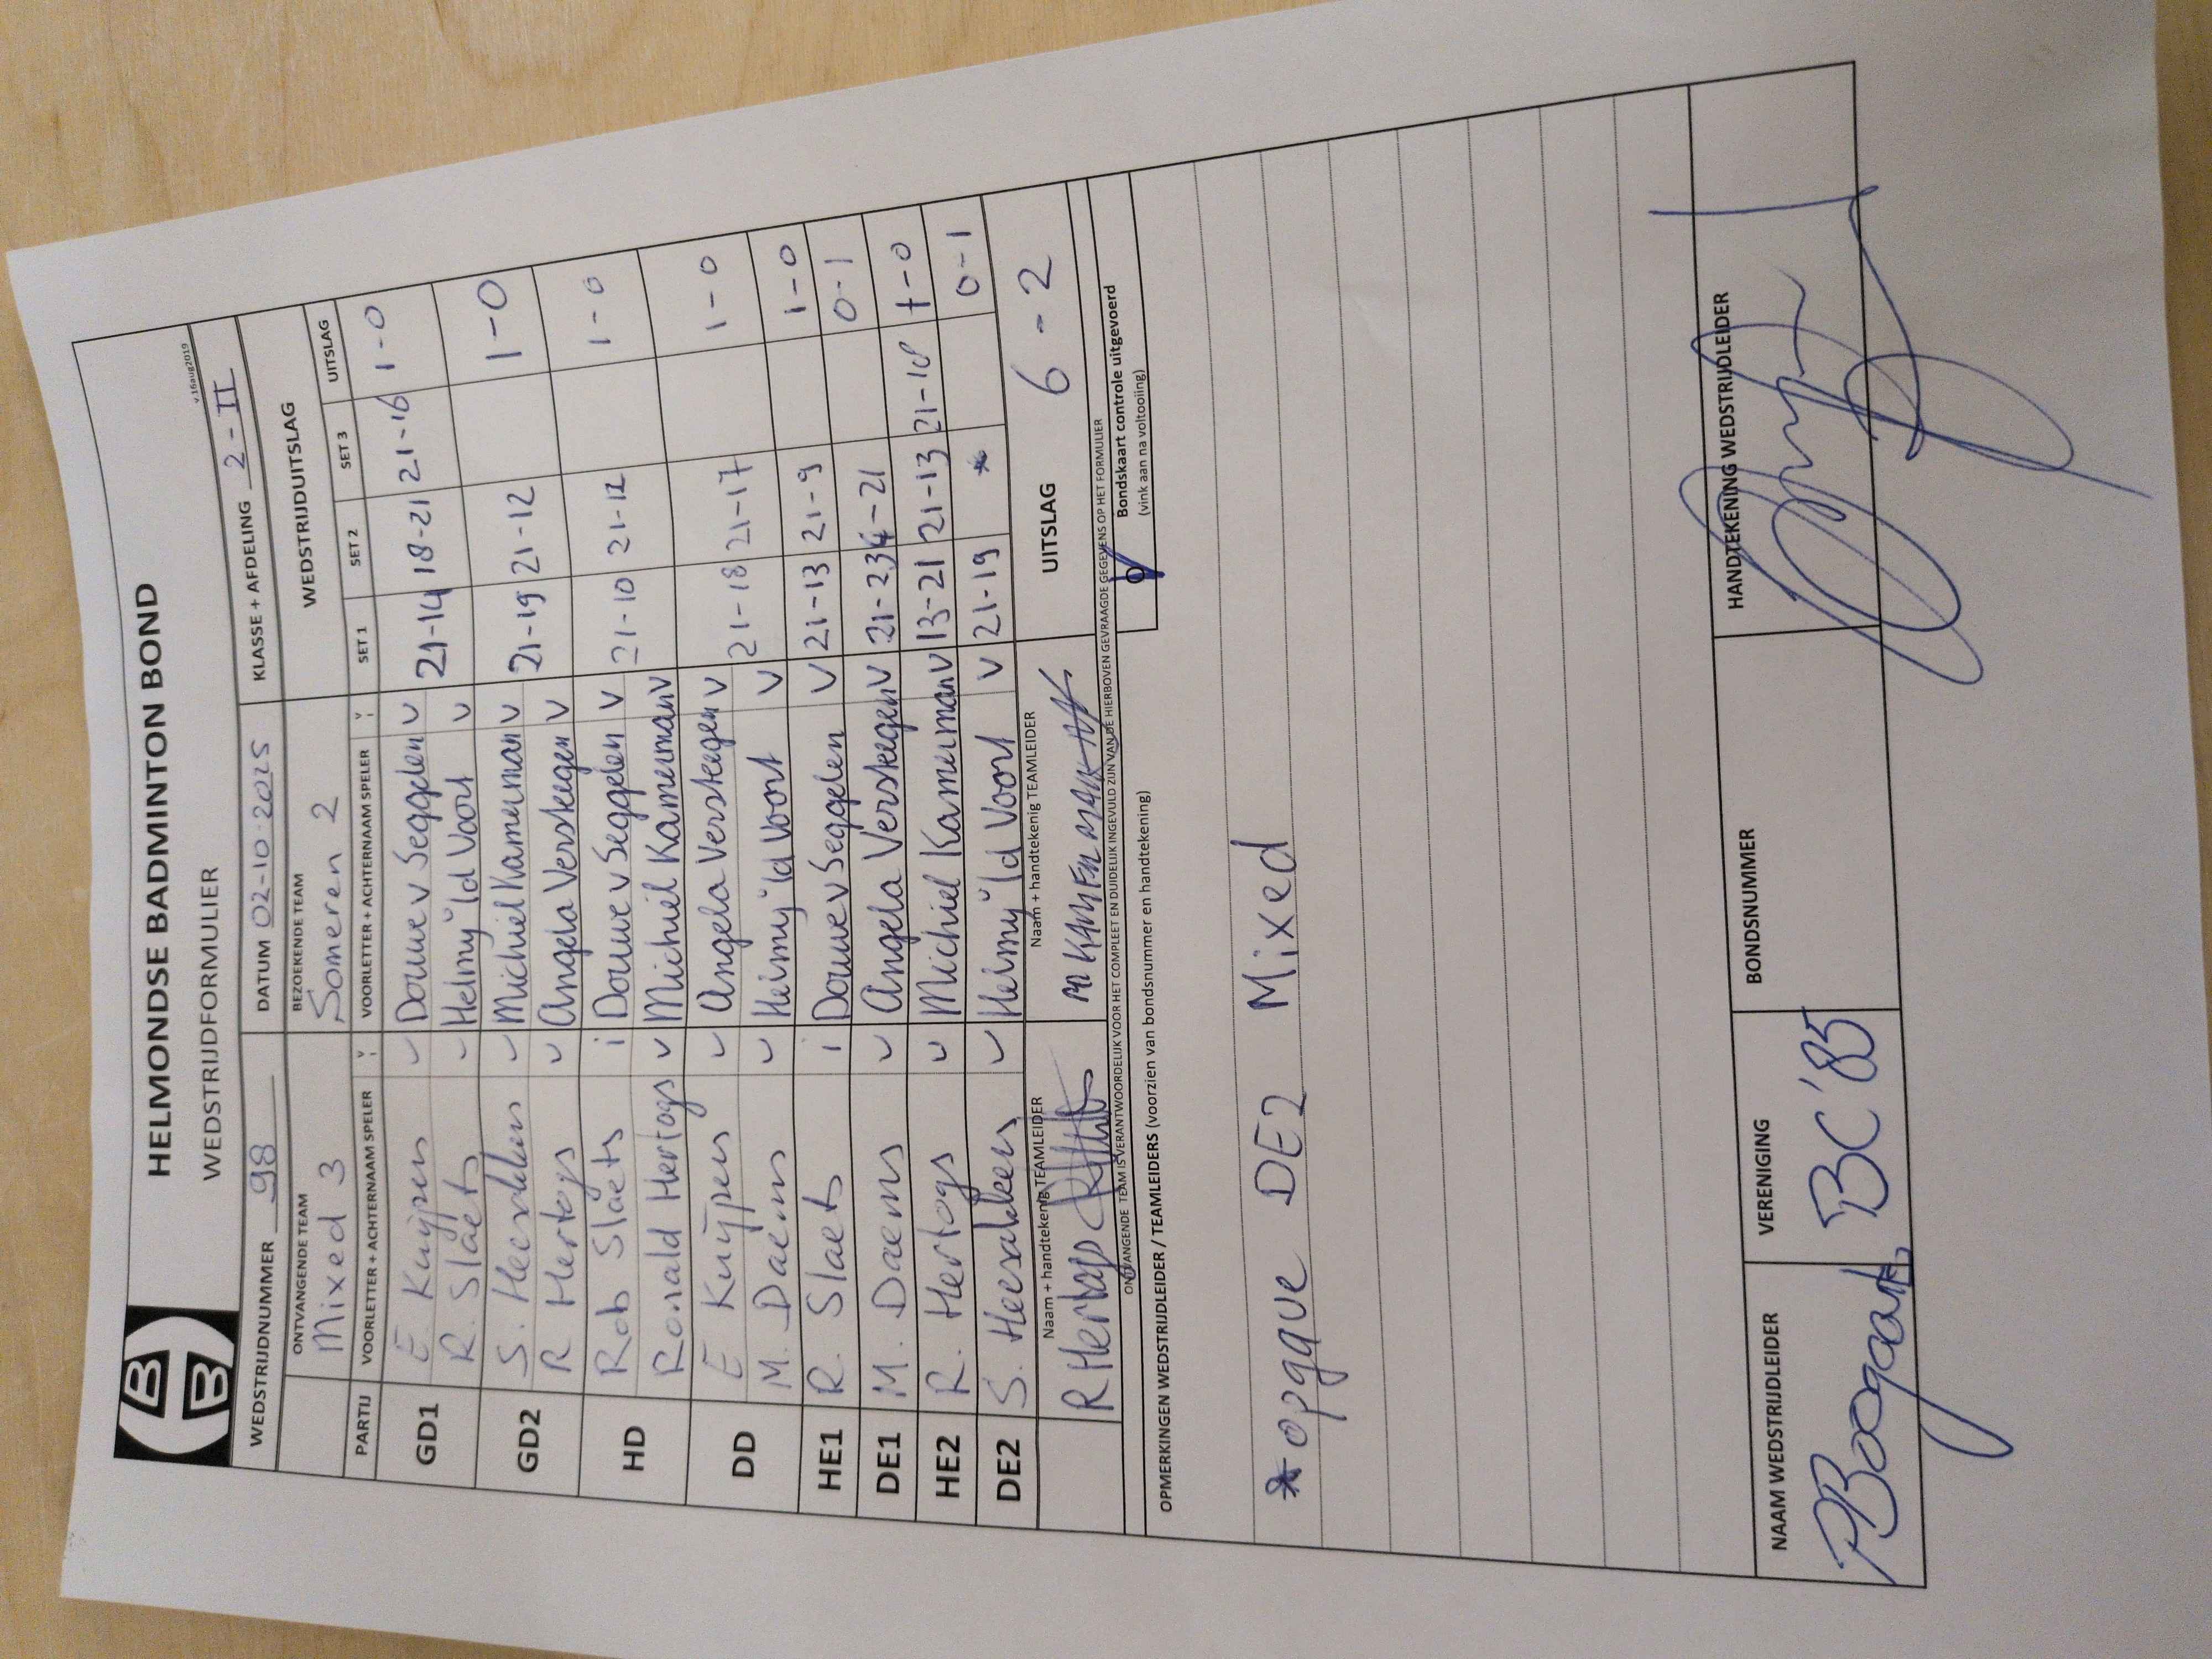 HELMONDSE BADMINTON BOND
WEDSTRIJDFORMULIER
v.16aug2019
WEDSTRIJDNUMMER 98 DATUM 02-10-2025 KLASSE + AFDELING 2-II
ONTVANGENDE TEAM BEZOEKENDE TEAM WEDSTRIJDUITSLAG
Mixed 3 Someren 2
PARTIJ VOORLETTER + ACHTERNAAM SPELER V VOORLETTER + ACHTERNAAM SPELER V SET 1 SET 2 SET 3 UITSLAG
GD1 E. Kuijpers v Douwe v Seggelen v 21-14 18-21 21-16 1-0
R. Slaets v Helmy v/d Voort v
GD2 S. Heesakkers v Michiel Kamerman v 21-19 21-12 1-0
R Hertogs v Angela Versteegen v
HD Rob Slaets i Douwe v Seggelen v 21-10 21-12 1-0
Ronald Hertogs v Michiel Kamerman v
DD E Kuijpers v Angela Versteegen v 21-18 21-17 1-0
M. Daems v Helmy v/d Voort v
HE1 R. Slaets i Douwe v Seggelen v 21-13 21-9 1-0
DE1 M. Daems v Angela Versteegen v 21-23 -21 0-1
HE2 R. Hertogs v Michiel Kamerman v 13-21 21-13 21-18 1-0
DE2 S. Heesakkers v Helmy v/d Voort v 21-19 * 0-1
Naam + handtekenig TEAMLEIDER Naam + handtekenig TEAMLEIDER
R Hertogs M KAMERMAN UITSLAG 6-2
ONTVANGENDE TEAM IS VERANTWOORDELIJK VOOR HET COMPLEET EN DUIDELIJK INGEVULD ZIJN VAN DE HIERBOVEN GEVRAAGDE GEGEVENS OP HET FORMULIER
Bondskaart controle uitgevoerd
(vink aan na voltooiing)
OPMERKINGEN WEDSTRIJDLEIDER / TEAMLEIDERS (voorzien van bondsnummer en handtekening)
* opgave DE2 Mixed
NAAM WEDSTRIJDLEIDER VERENIGING BONDSNUMMER HANDTEKENING WEDSTRIJDLEIDER
PBoogaarts BC '85